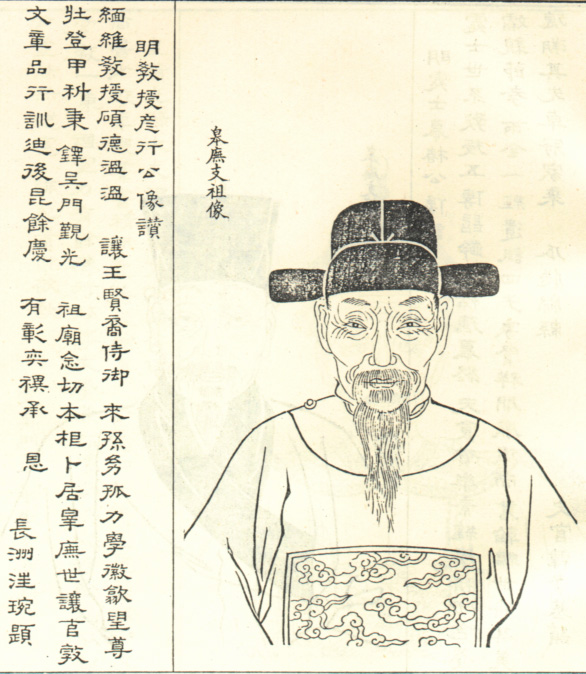 皋廡支祖像
明敎授彦行公像讃
緬維敎授碩德溫溫 讓王賢裔侍御 來孫幼孤力學徽歙望尊
壯登甲科秉 鐸吳門觀光 祖廟念切本根卜居皋廡世讓敦
文章品行訓迪後昆餘慶 有彰奕禩承 恩
長洲汪琬題